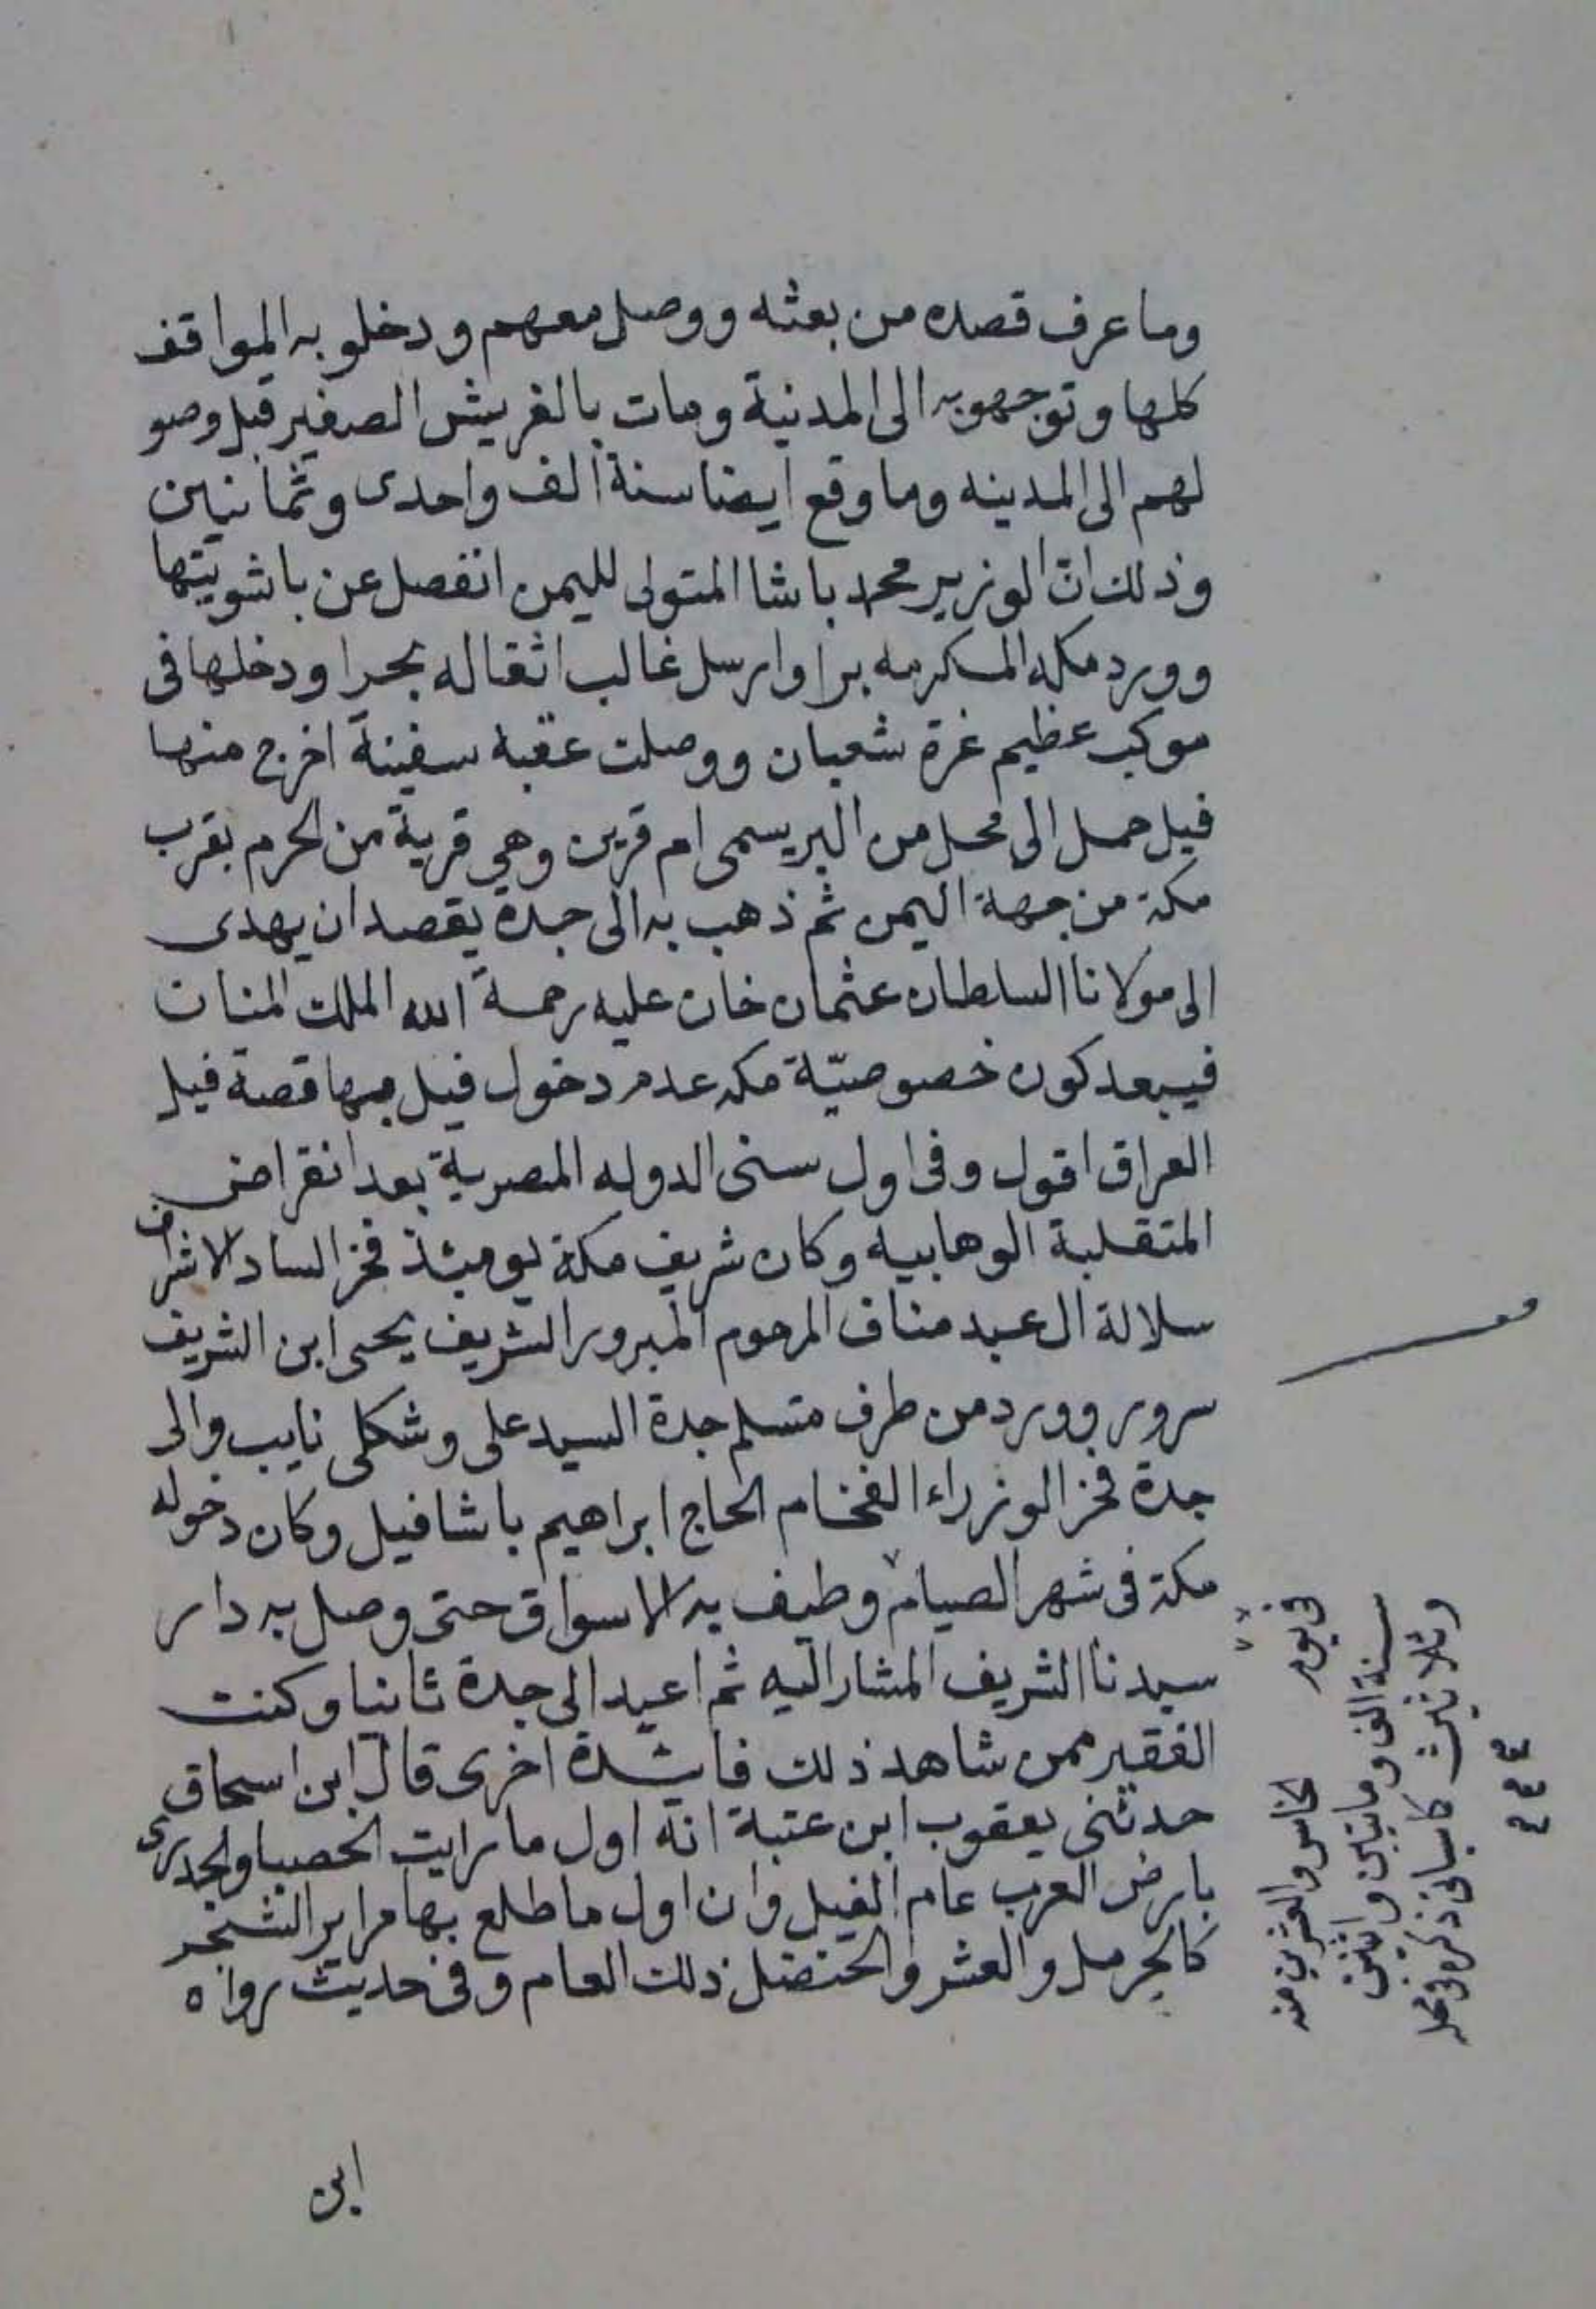 وما عرف قصده من بعثه ووصل معهم ودخلو به المواقف
كلها وتوجهوبه الى المدنية ومات بالفريش الصغير قبل وصو
لهم الى المدينه وما وقع ايضا سنة الف واحدى وثمانين
وذلك انّ الوزير محمد باشا المتولى لليمن انفصل عن باشويتها
وورد مكه المكرمه برا وارسل غالب اثقاله بحرا ودخلها فى
موكب عظيم غرة شعبان ووصلت عقبه سفينة اخرج منها
فيل حمل الى محل من البر يسمى ام قرين وهي قرية من الحرم بقرب
مكة من جهة اليمن ثم ذهب به الى جدة يقصد ان يهدى
الى مولانا السلطان عثمان خان عليه رحمة الله الملك المنان
فيبعد كون خصوصيّة مكه عدم دخول فيل بها قصة فيل
العراق اقول وفى اول سنى الدوله المصرية بعد انقراض
المتقلبة الوهابيه وكان شريف مكة يومئذ فخر الساد الاشراف
سلالة ال عبد مناف المرحوم المبرور الشريف يحيى ابن الشريف
سرور وورد من طرف متسلم جدة السيد على وشكلى نايب والى
جدة فخر الوزراء الفخام الحاج ابراهيم باشا فيل وكان دخوله
مكة فى شهر الصيام وطيف به الاسواق حتى وصل به دار
سيدنا الشريف المشار اليه ثم اعيد الى جدة ثانيا وكنت
الفقير ممن شاهد ذلك فائدة اخرى قال ابن اسحاق
حدثنى يعقوب ابن عتبة انه اول ما رايت الحصبا والجدرى
بارض العرب عام الفيل وان اول ما طلع بها مراير الشجر
كالحرمل والعشر والحنضل ذلك العام وفى حديث رواه
ابن
فى يوم
الخامس والعشرين منه
سنة الف ومايتين واثنين
وثلاثين كاسياتى ذكره فى محله